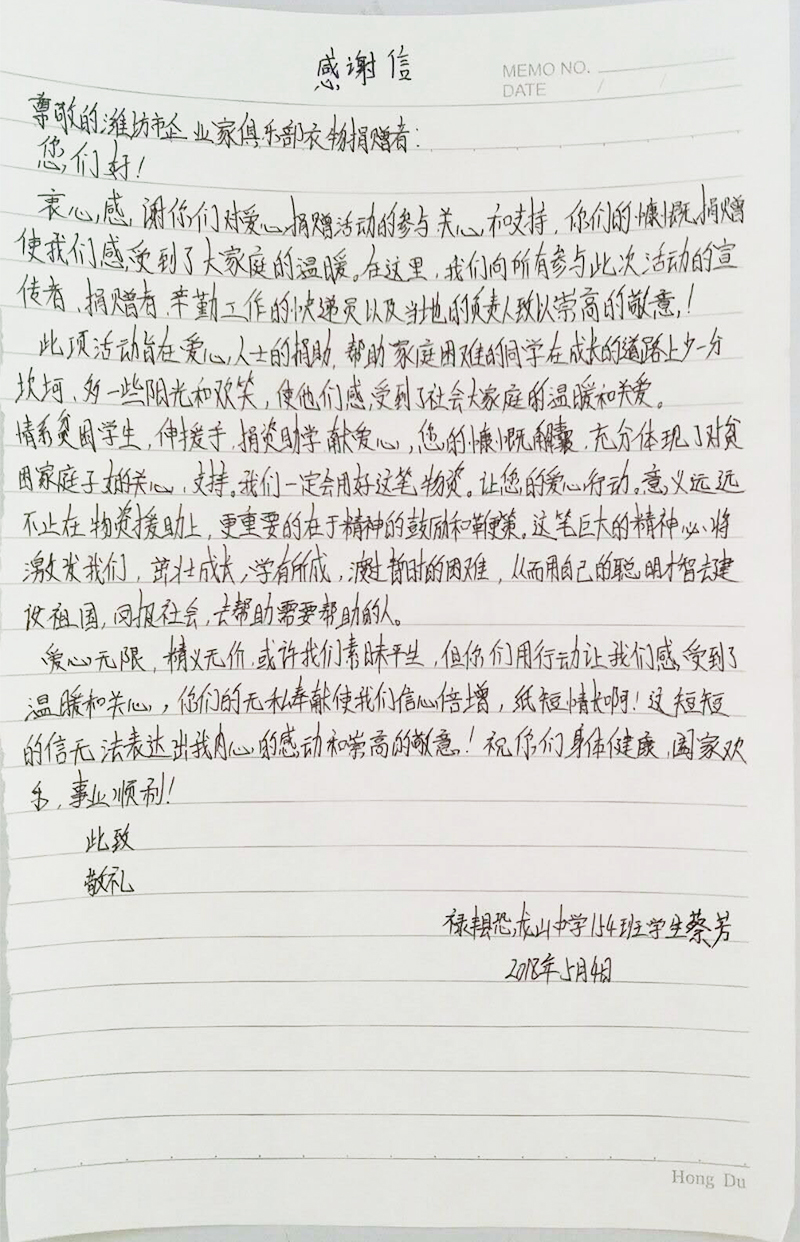 感谢信
MEMO NO.
DATE / /
尊敬的潍坊市企业家俱乐部衣物捐赠者：
您们好！
衷心感谢你们对爱心捐赠活动的参与关心和支持，你们的慷慨捐赠
使我们感受到了大家庭的温暖。在这里，我们向所有参与此次活动的宣
传者、捐赠者、辛勤工作的快递员以及当地的负责人致以崇高的敬意！
此项活动旨在爱心人士的捐助，帮助家庭困难的同学在成长的道路上少一分
坎坷、多一些阳光和欢笑，使他们感受到了社会大家庭的温暖和关爱。
情系贫困学生，伸援手，捐资助学献爱心，您的慷慨解囊，充分体现了对贫
困家庭子女的关心、支持。我们一定会用好这笔物资。让您的爱心行动。意义远远
不止在物资援助上，更重要的在于精神的鼓励和鞭策。这笔巨大的精神必将
激发我们，茁壮成长，学有所成，渡过暂时的困难，从而用自己的聪明才智去建
设祖国，回报社会，去帮助需要帮助的人。
爱心无限，情义无价，或许我们素昧平生，但你们用行动让我们感受到了
温暖和关心，你们的无私奉献使我们信心倍增，纸短情长啊！这短短
的信无法表达出我内心的感动和崇高的敬意！祝你们身体健康，阖家欢
乐，事业顺利！
此致
敬礼
禄丰县恐龙山中学154班学生蔡芳
2018年5月4日
Hong Du